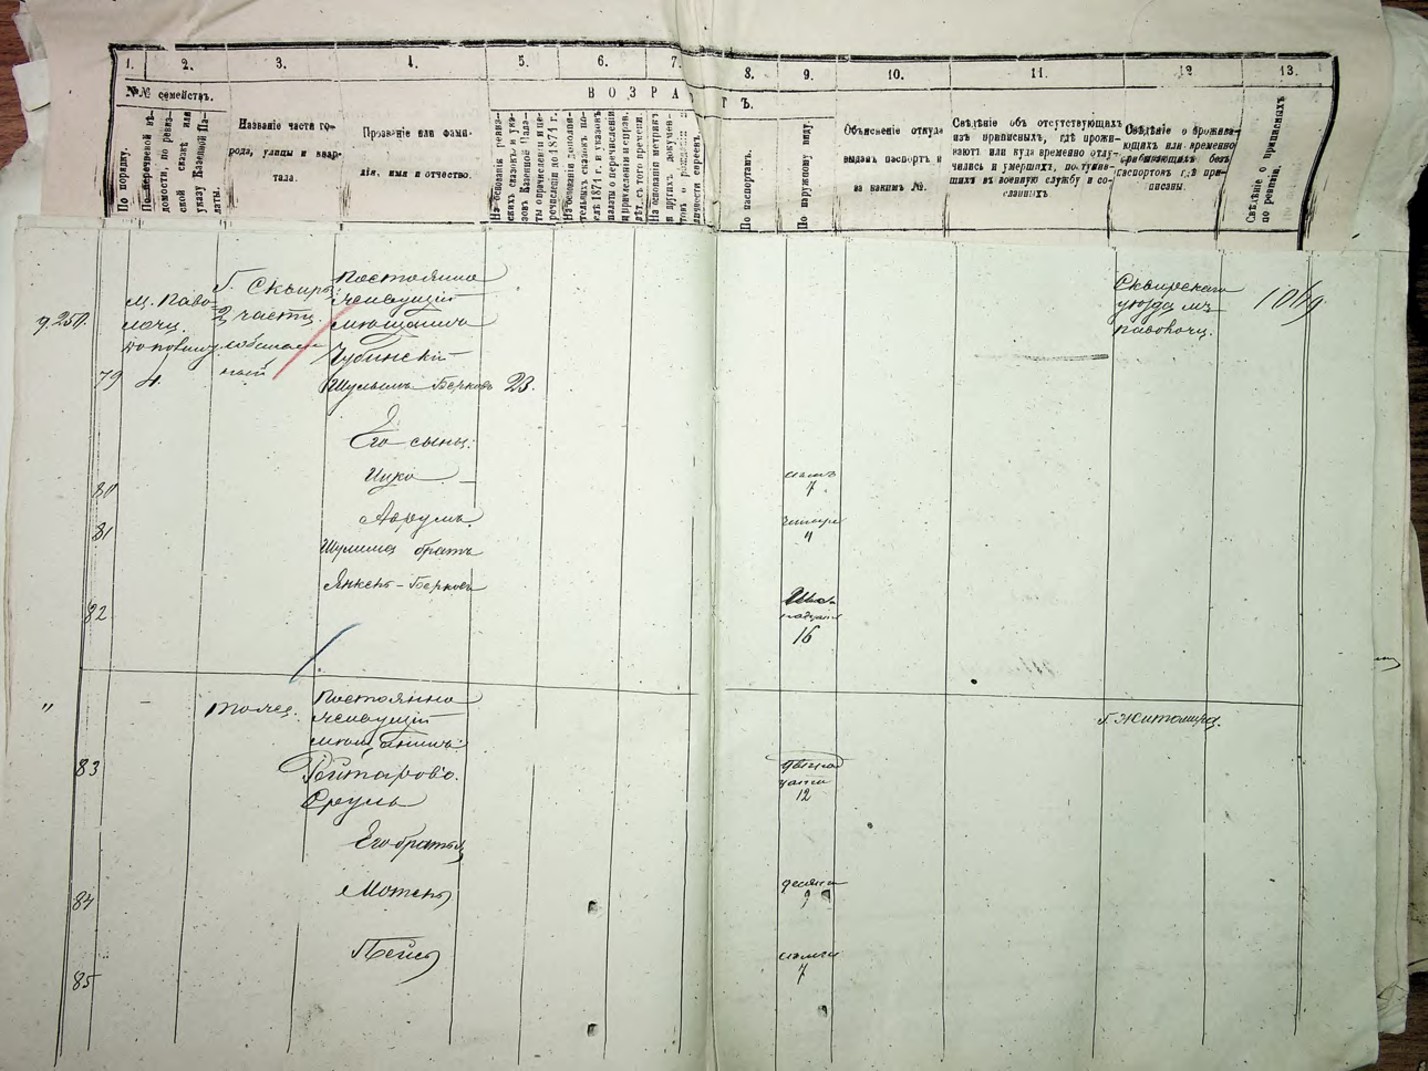 1. 2. 3. 4. 5. 6. 7. 8. 9. 10. 11. 12 13.
№№ семействъ.
В О З Р А Т Ъ.
По порядку.
По перечневой вѣ-
домости, по ревиз-
ской сказкѣ или
указу Казенной Па-
латы.
Названіе части го-
рода, улицы и квар-
тала.
Прозваніе или фами-
лія, имя и отчество.
На основаніи ревиз-
скихъ сказокъ и ука-
зовъ Казенной Пала-
ты о причисленіи и пе-
речисленіи до 1874 г.
На основаніи дополни-
тельныхъ сказокъ по-
слѣ 1874 г. и указовъ
палаты о перечисленіи
и причисленіи
лѣтъ, съ того времени.
На основаніи метрикъ
и другихъ докумен-
товъ о
личности евреевъ.
По паспортамъ.
По наружному виду.
Объясненіе откуда
выданъ паспортъ и
за какимъ №.
Свѣдѣніе объ отсутствующихъ
изъ приписныхъ, гдѣ прожи-
ваютъ или куда временно отлу-
чились и умершихъ, поступив-
шихъ въ военную службу и со-
сланныхъ
Свѣдѣніе о прожива-
ющихъ или временно
пребывающихъ безъ
паспортовъ гдѣ при-
писаны.
Свѣдѣніе о приписныхъ
по ревизіи.
250.
м. Паво-
лочи.
4.
г. Сквиръ
2 части
Постоянно
живущій
мѣщанинъ
Губинскій
79 Шулымъ Берковъ 23.
Сквирскаго
уѣзда мѣ
Паволочи.
1069
Его сыны:
80 Ицко семь
7
81 Аврумъ четыре
4
Шулима братъ
82 Янкель-Берковъ
16
" тожъ. Постоянно
живущій
мѣщанинъ
г. Житомира.
83 Рейтарово.
Сруль
12
Его братья
84 Мотель
9
85 Пейсъ
7